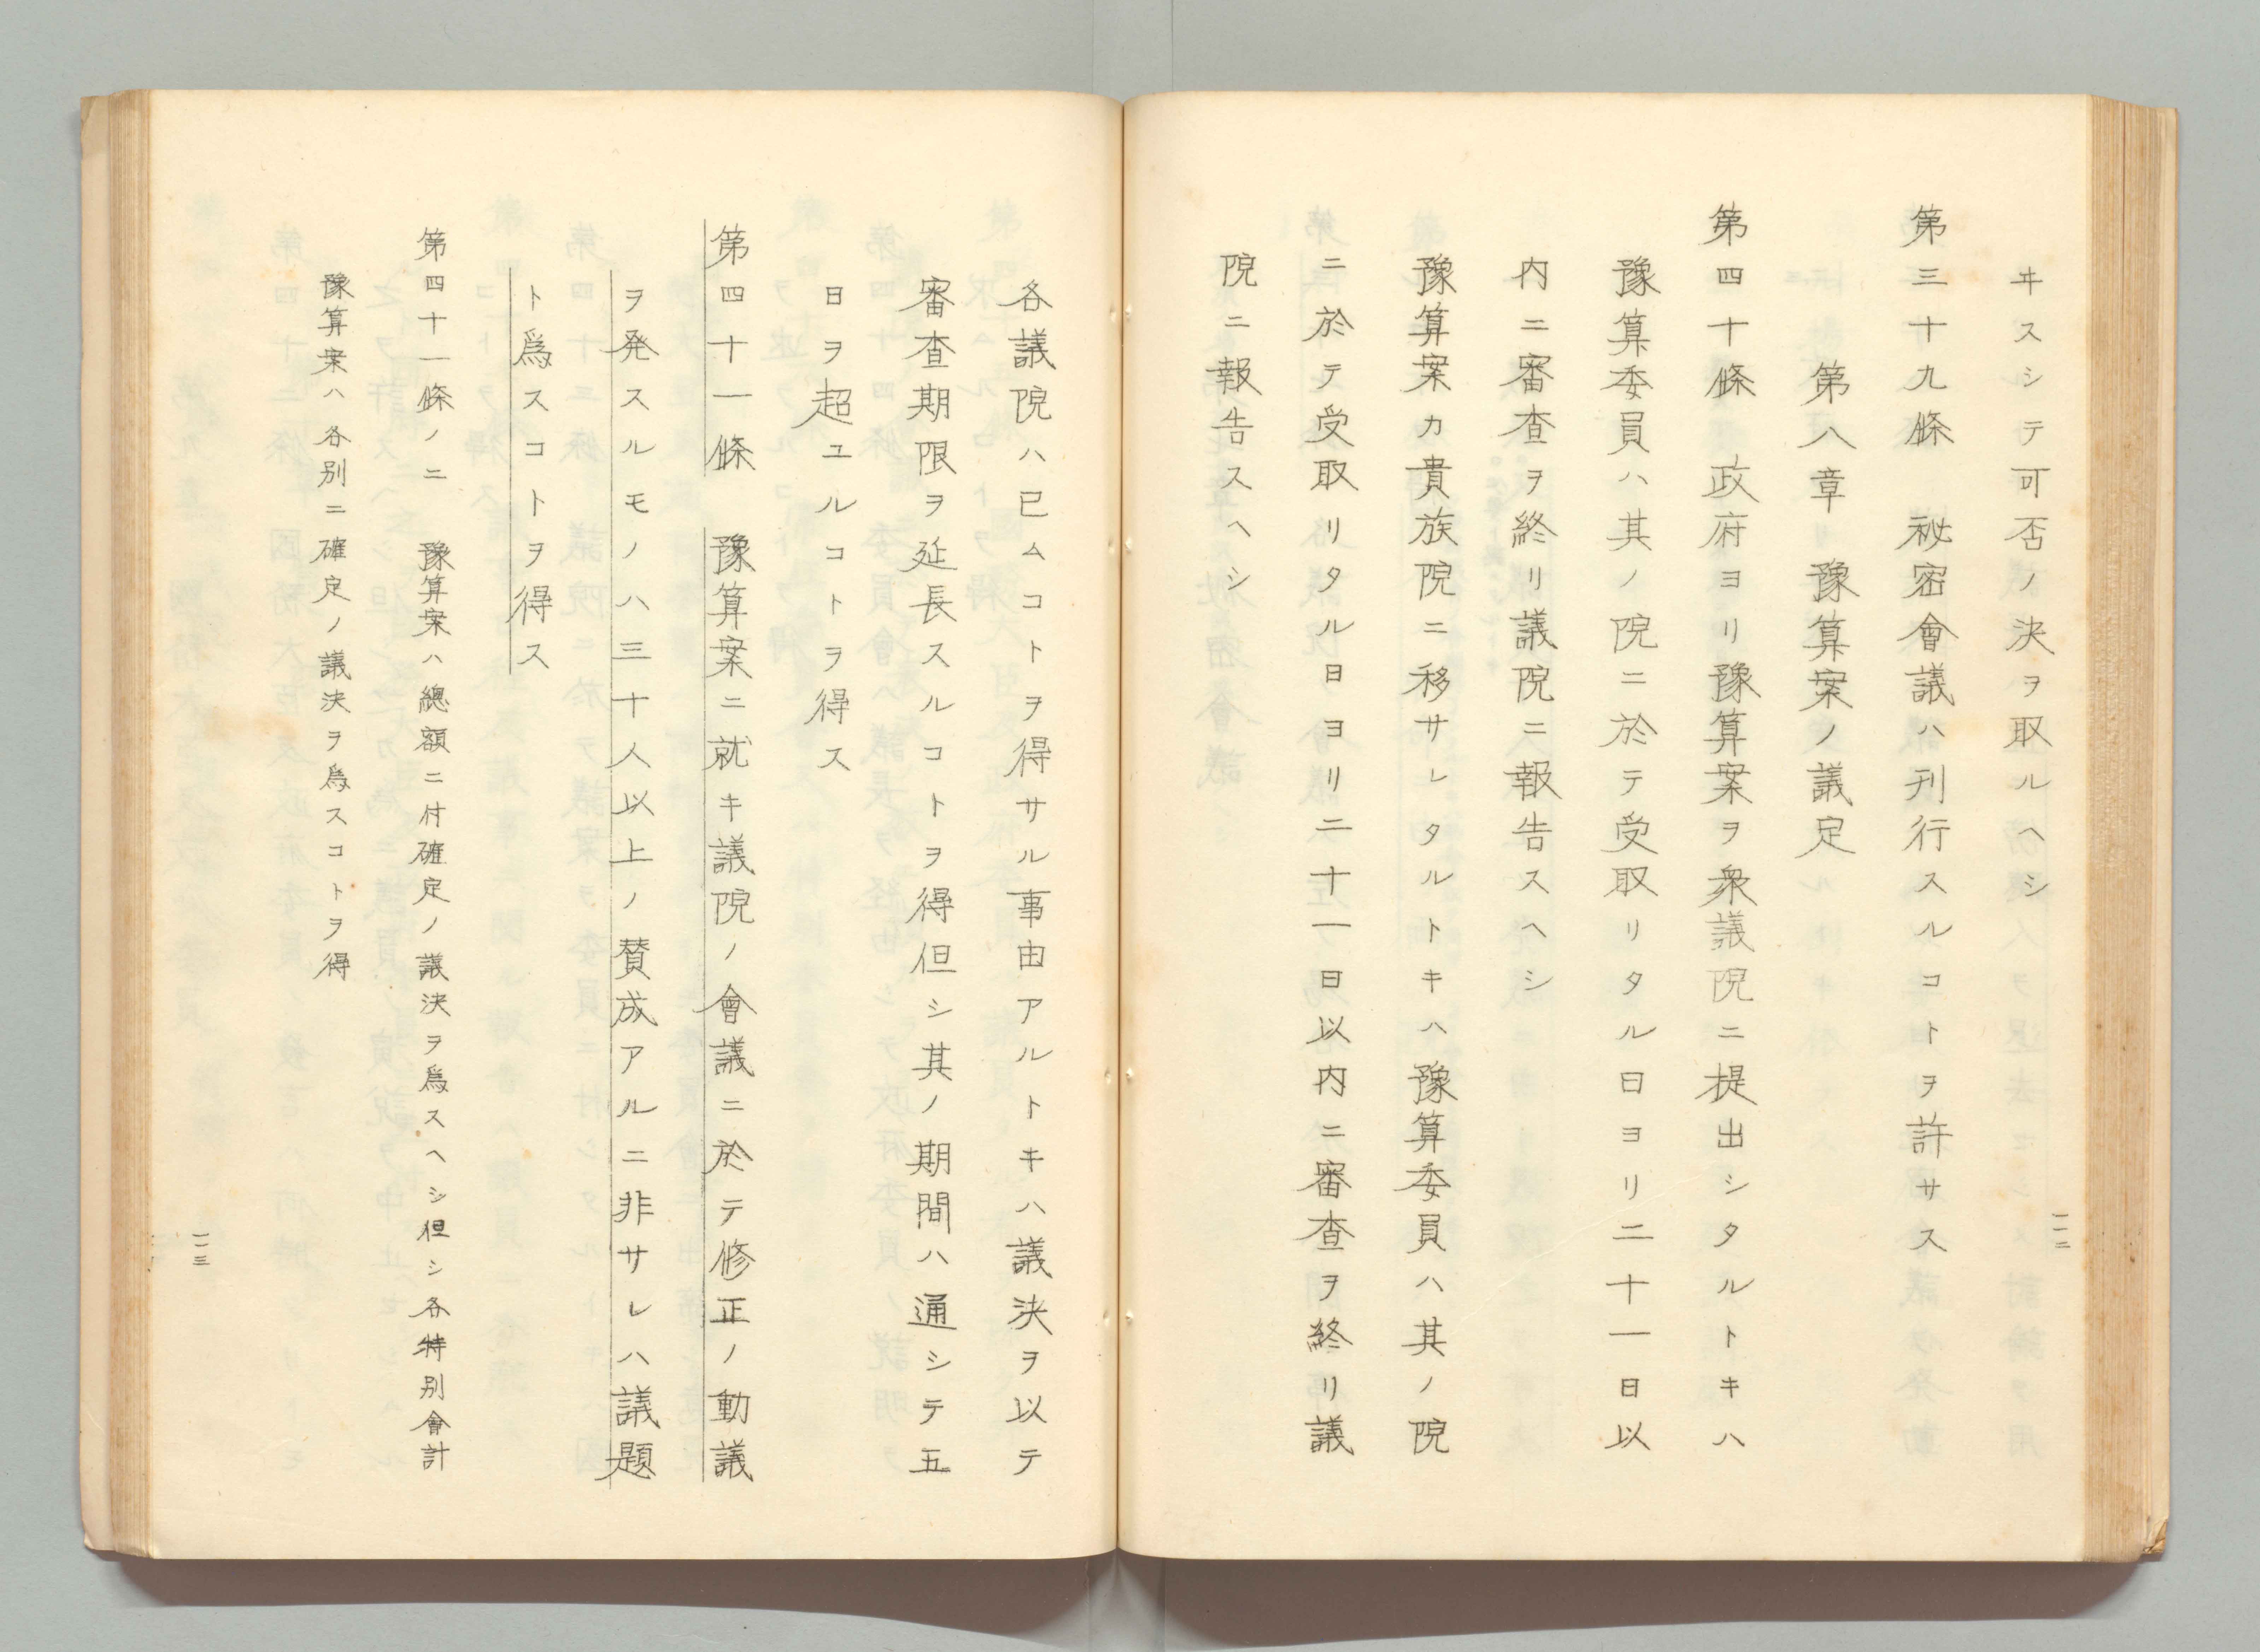 ヰスシテ可否ノ決ヲ取ルヘシ
第三十九條　秘密會議ハ刊行スルコトヲ許サス
第八章　豫算案ノ議定
第四十條　政府ヨリ豫算案ヲ衆議院ニ提出シタルトキハ
豫算委員ハ其ノ院ニ於テ受取リタル日ヨリ二十一日以
内ニ審査ヲ終リ議院ニ報告スヘシ
豫算案カ貴族院ニ移サレタルトキハ豫算委員ハ其ノ院
ニ於テ受取リタル日ヨリ二十一日以内ニ審査ヲ終リ議
院ニ報告スヘシ
一二
各議院ハ已ムコトヲ得サル事由アルトキハ議決ヲ以テ
審査期限ヲ延長スルコトヲ得但シ其ノ期間ハ通シテ五
日ヲ超ユルコトヲ得ス
第四十一條　豫算案ニ就キ議院ノ會議ニ於テ修正ノ動議
ヲ発スルモノハ三十人以上ノ賛成アルニ非サレハ議題
ト為スコトヲ得ス
第四十一條ノ二　豫算案ハ總額ニ付確定ノ議決ヲ為スヘシ但シ各特別會計
豫算案ハ各別ニ確定ノ議決ヲ為スコトヲ得
一三